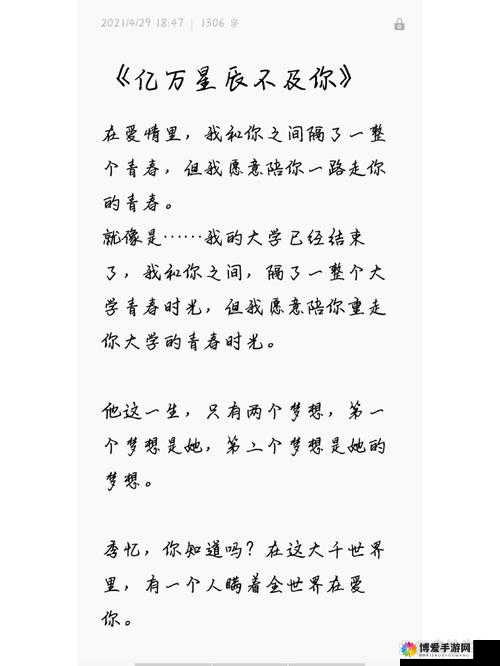 2021/4/29 18:47 | 1306 字
《亿万星辰不及你》
在爱情里，我和你之间隔了一整
个青春，但我愿意陪你一路走你
的青春。
就像是……我的大学已经结束
了，我和你之间，隔了一整个大
学青春时光，但我愿意陪你重走
你大学的青春时光。
他这一生，只有两个梦想，第一
个梦想是她，第二个梦想是她的
梦想。
季忆，你知道吗？在这大千世界
里，有一个人瞒着全世界在爱
你。
博爱手游网